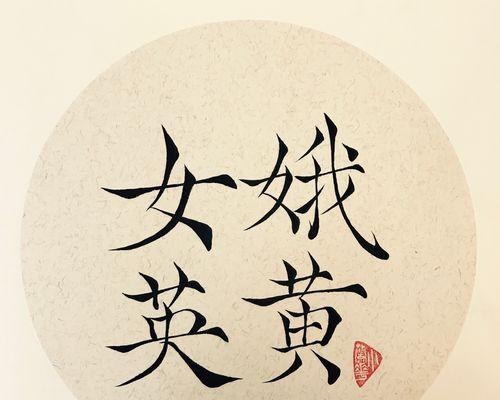 娥黄
女英